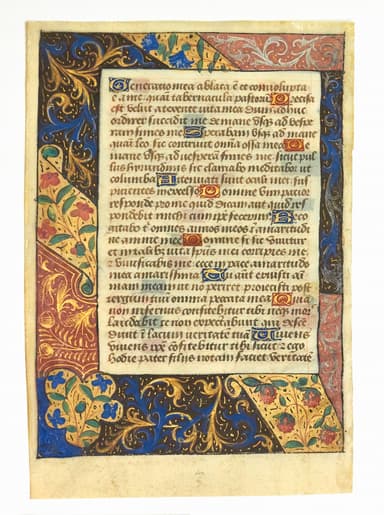 Generatio mea ablata ē et convoluta
e a me: quasi tabernaculū pastorū Precisa
est velut a texente vita mea dum adhuc
ordirer succidit me de mane usq̄ ad vespe
ram finies me Sperabam usq̄ ad mane
quasi leo sic contrivit om̄ia ossa mea De
mane usq̄ ad vesperā finies me sicut pul
lus hyrundinis sic clamabo meditabor ut
columba Attenuati sunt oculi mei: sus
pitientes in excelso Domine vim patior
responde pro me quid dicam aut quid res
pondebit michi cum ipse fecerim Reco
gitabo t̄ omnes annos meos i amaritudi
ne anime mee Domine si sic vivitur
et in talibus vita spūs mei corripies me
vivificabis me ecce in pace amaritudo
mea amarissima Tu aut̄ eruisti aīam
meam ut non periret proiecisti post
tergum tuū omnia peccata mea Quia
non infernus confitebitur tibi neq̄ mors
laudabit te non expectabunt qui desce
dunt ī lacum veritatē tuā Vivens
vivens ip̄e cōfitebitur tibi sicut et ego
hodie pater filiis notam faciet veritatē